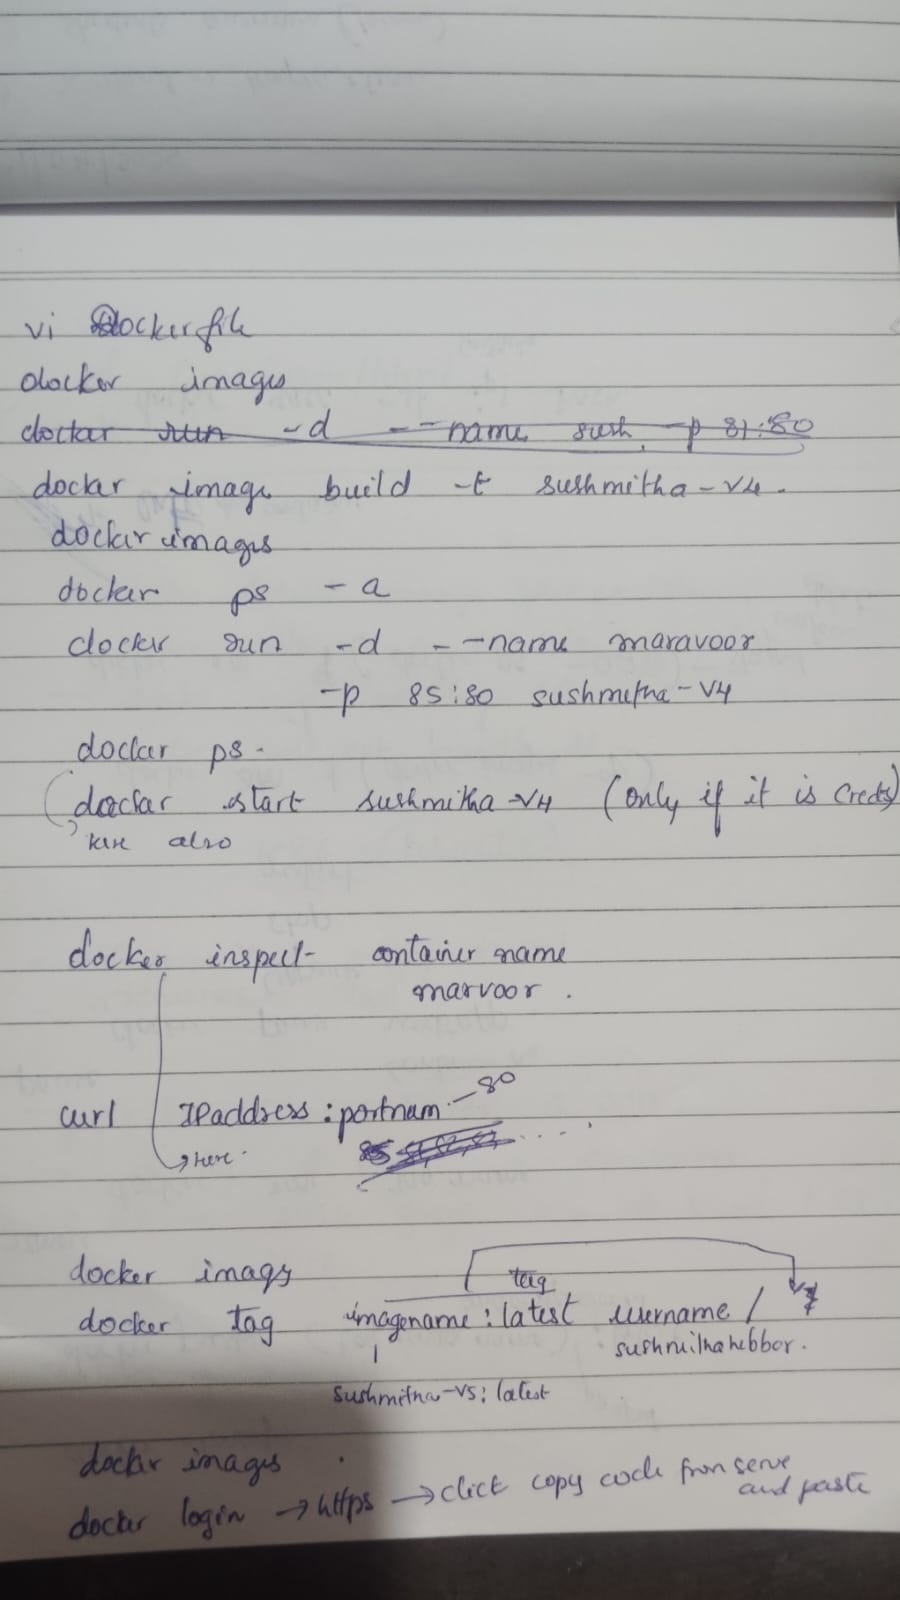 vi Dockerfile
docker images
docker run -d --name sush -p 81:80
docker image build -t sushmitha-v4 .
docker images
docker ps -a
docker run -d --name maravoor
-p 85:80 sushmitha-v4
docker ps.
(docker start sushmitha-v4 (only if it is
also
docker inspect container name
marvoor.
curl IPaddress:portnam - 80
→here.
85
docker images
tag
docker tag imagename:latest username/
sushmithahebbar.
sushmitha-v5:latest
docker images
docker login → https → click copy code from serve
and paste